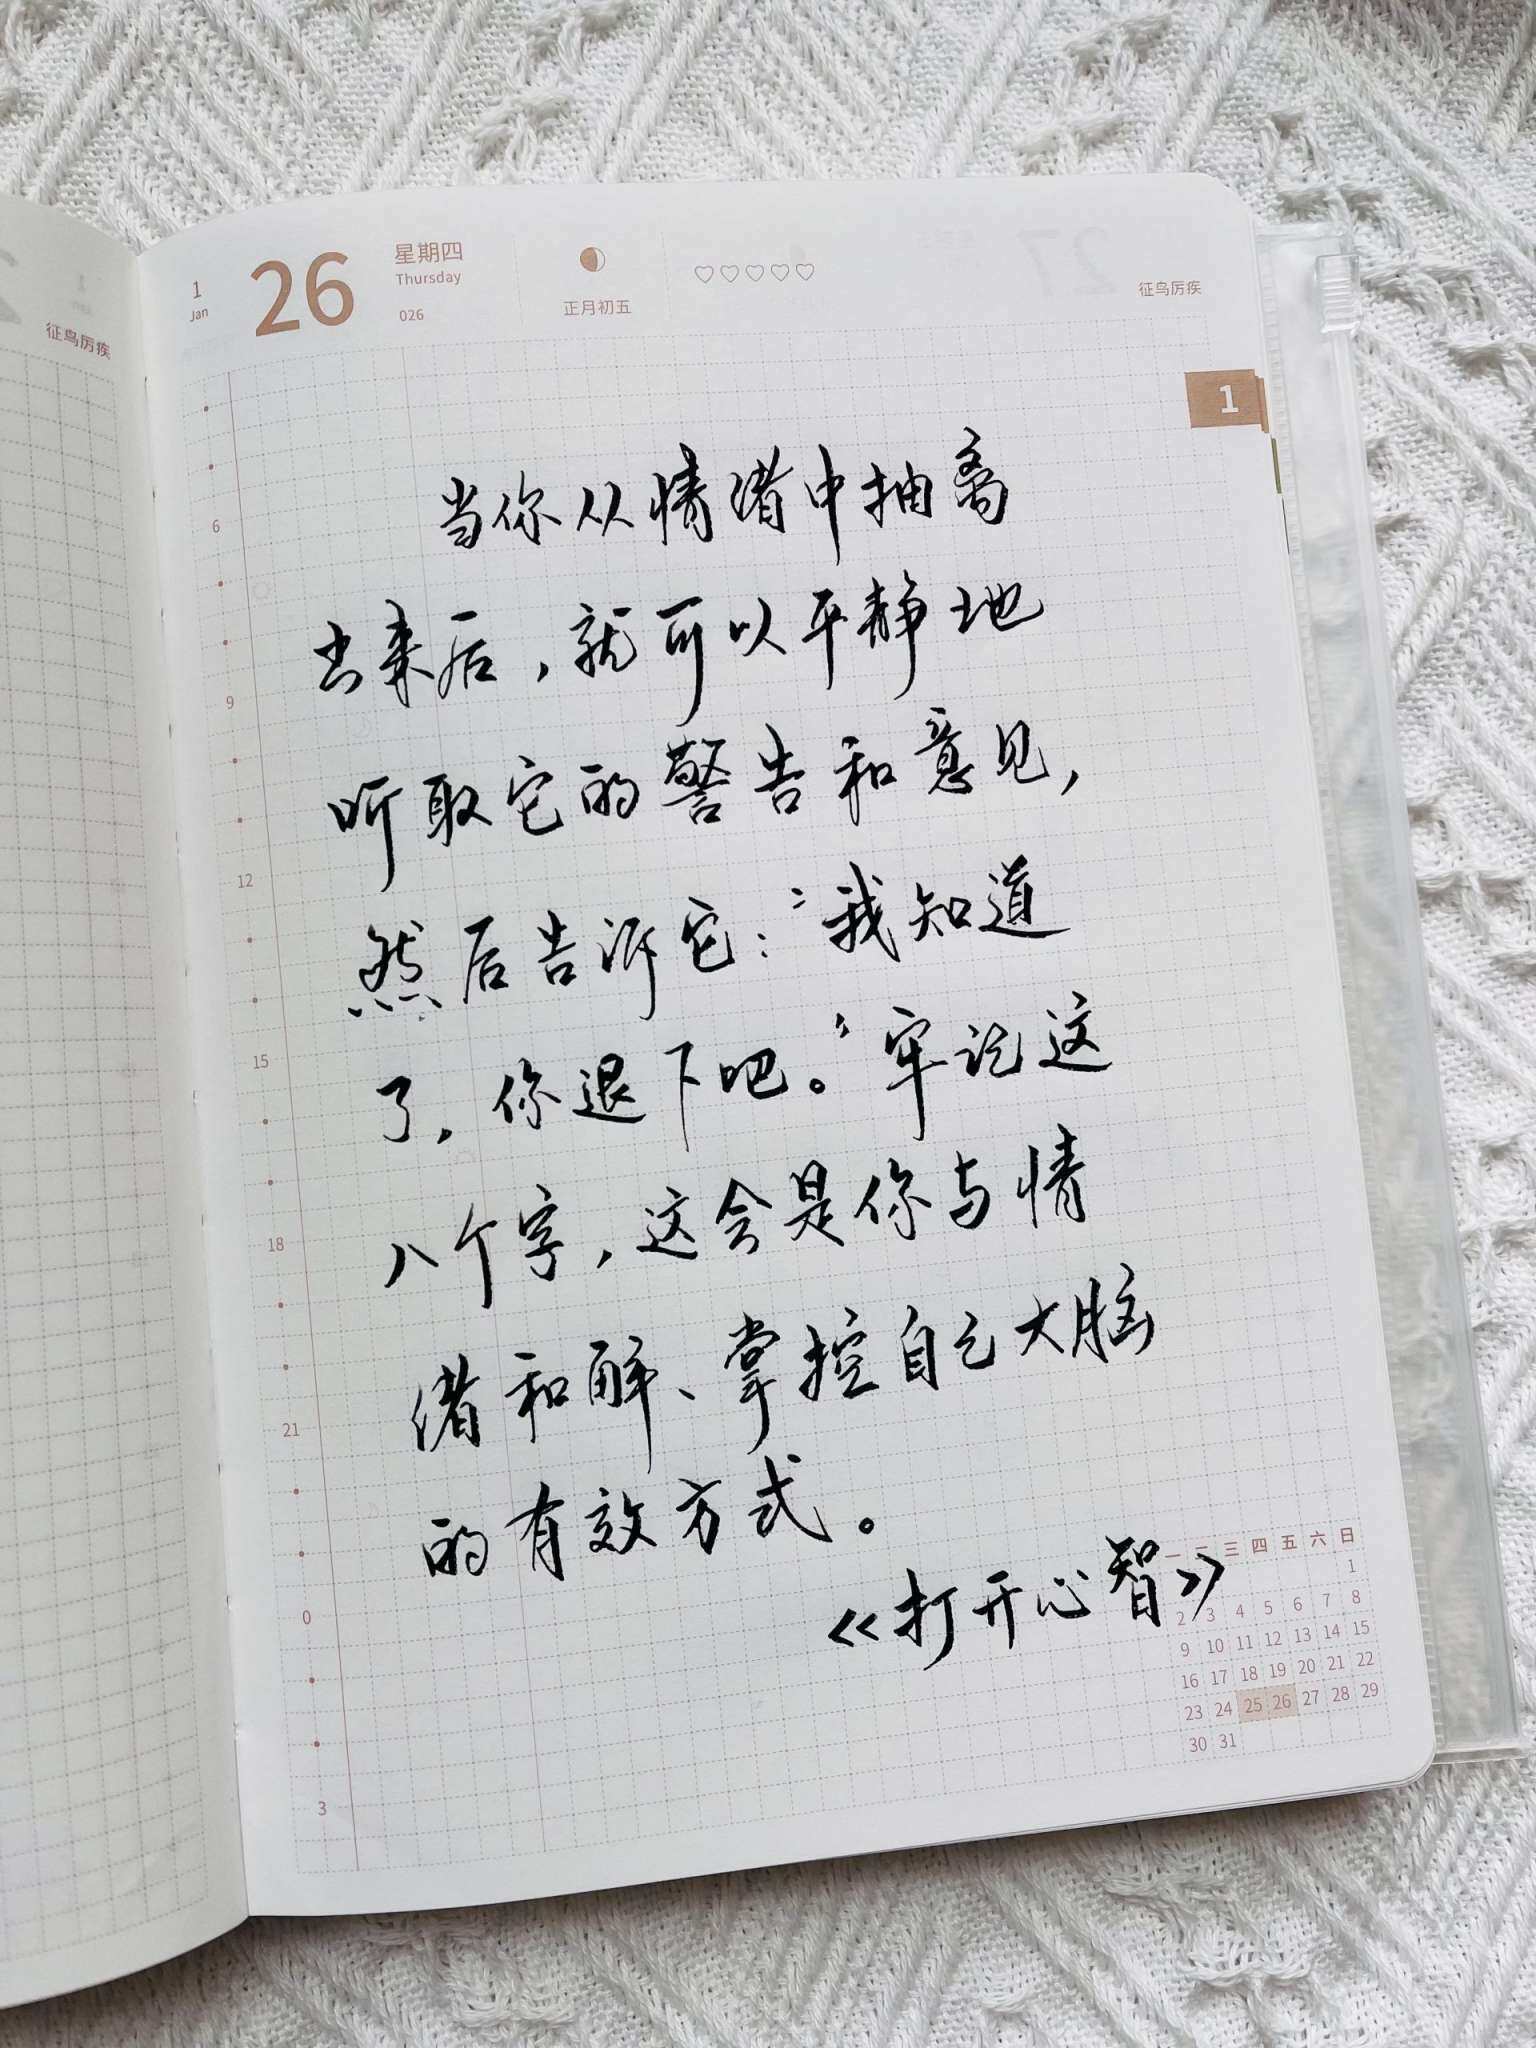 征鸟厉疾
1
Jan
26
星期四
Thursday
026
正月初五
征鸟厉疾
1
当你从情绪中抽离
出来后，就可以平静地
听取它的警告和意见，
然后告诉它：“我知道
了，你退下吧。”牢记这
八个字，这会是你与情
绪和解、掌控自己大脑
的有效方式。
《打开心智》
6
9
12
15
18
21
0
3
一 二 三 四 五 六 日
1
2 3 4 5 6 7 8
9 10 11 12 13 14 15
16 17 18 19 20 21 22
23 24 25 26 27 28 29
30 31